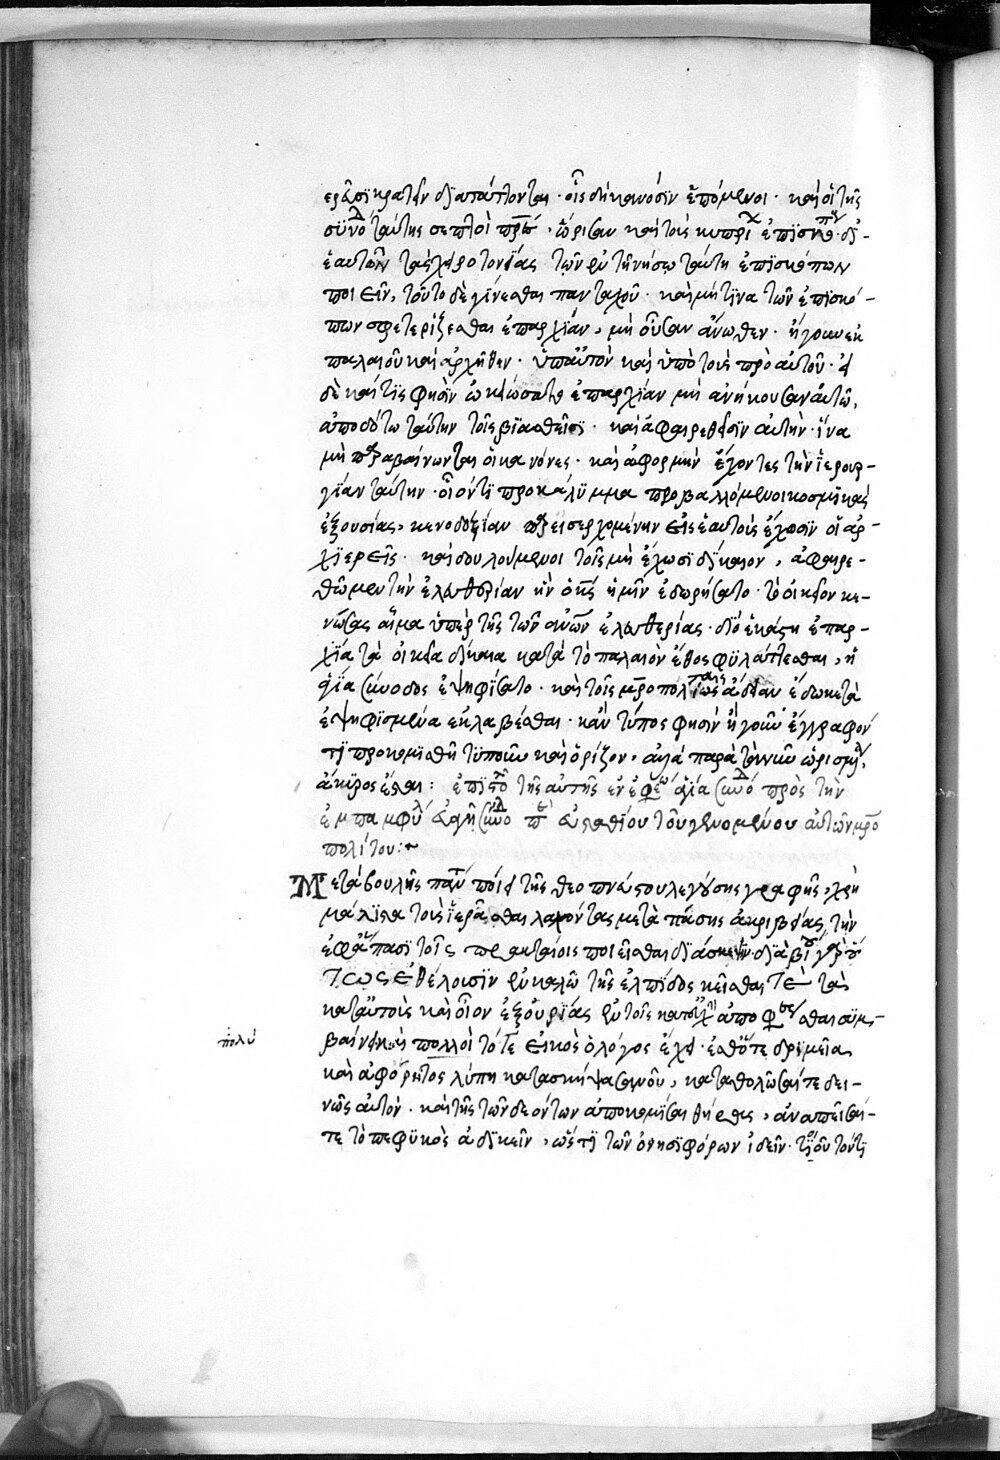 διαπράττονται· οἷς δὴ κανόσιν ἑπόμενοι· καὶ οἱ τῆς
συνόδου ταύτης σεπτοὶ πατέρες, ὥρισαν καὶ τοὺς κυπρίων ἐπισκόπους δι'
ἑαυτῶν τὰς χειροτονίας τῶν ἐν τῇ νήσῳ ταύτῃ ἐπισκόπων
ποιεῖν, τοῦτο δὲ γίνεσθαι πανταχοῦ· καὶ μή τινα τῶν ἐπισκό-
πων σφετερίζεσθαι ἐπαρχίαν, μὴ οὖσαν ἄνωθεν· ἤγουν ἐκ
παλαιοῦ καὶ ἀρχῆθεν· ὑπ' αὐτὸν καὶ ὑπὸ τοὺς πρὸ αὐτοῦ· εἰ
δὲ καί τις φησὶν ᾠκειώσατο ἐπαρχίαν μὴ ἀνήκουσαν αὐτῶ,
ἀποδότω ταύτην τοῖς βιασθεῖσι· καὶ ἀφαιρεθείσιν αὐτήν· ἵνα
μὴ παραβαίνωνται οἱ κανόνες· καὶ ἀφορμὴν ἔχοντες τὴν ἱερουρ-
γίαν ταύτην· οἱονεί τι προκάλυμμα προβαλλόμενοι κοσμικὰς
ἐξουσίας, κενοδοξίαν παρεισερχομένην εἰς ἑαυτοὺς ἔχωσιν οἱ ἀρ-
χιερεῖς· καὶ δουλούμενοι τοῖς μὴ ἔχωσι δίκαιον, ἀφαιρε-
θῶμεν τὴν ἐλευθερίαν ἣν ὁ κύριος ἡμῖν ἐδωρήσατο· τὸ οἰκεῖον κε-
νώσας αἷμα ὑπὲρ τῆς τῶν ἀνθρώπων ἐλευθερίας· διὸ ἑκάστη ἐπαρ-
χία τὰ οἰκεῖα δίκαια κατὰ τὸ παλαιὸν ἔθος φυλάττεσθαι, ἡ
ἁγία σύνοδος ἐψηφίσατο· καὶ τοῖς μητροπολίταις ἄδειαν ἔδωκε τὰ
ἐψηφισμένα ἐκλαβέσθαι· κἂν τύπος φησὶν ἤγουν ἔγγραφόν
τι προκομισθῆ τυποῦν καὶ ὁρίζον, ἀλλὰ παρὰ τὰ νῦν ὡρισμένα,
ἄκυρος ἔσται: ἐπιστολὴ τῆς αὐτῆς ἐν ἐφέσῳ ἁγία συνόδου πρὸς τὴν
ἐν παμφυλίᾳ εὐαγῆ σύνοδον περὶ εὐσταθίου τοῦ γενομένου αὐτῶν μητρο
πολίτου:~
Μετὰ βουλῆς πάντα ποίει τῆς θεοπνεύστου λεγούσης γραφῆς, χρὴ
μάλιστα τοὺς ἱερᾶσθαι λαχόντας μετὰ πάσης ἀκριβείας τὴν
ἐφ' ἅπασι τοῖς πρακταίοις ποιεῖσθαι διάσκεψιν·
ΤΩΣ ἐθέλουσιν ἐν καλῶ τῆς ἐλπίδος κεῖσθαί ΤΕ τὰ
κατ' αὐτοὺς καὶ οἷον ἐξ οὐρίας ἐν τοῖς κατ' εὐχὴν ἀποφέρεσθαι συμ-
βαίνει καὶ πολλοί τό ΤΕ εἰκὸς ὁ λόγος ἔχει· ἔσθ' ὅτε δριμεῖα
καὶ ἀφόρητος λύπη κατασκήψασα νοῦ, καταθολῶσαί τε δει-
νῶς αὐτόν· καὶ τῆς τῶν δεόντων ἀποκομίσαι θήρας, ἀναπεῖσαί-
τε τὸ πεφυκὸς ἀδικεῖν, ὡς ἔτι τῶν ὀνησιφόρων ἰδεῖν· τοιοῦτόν τι
πολὺ